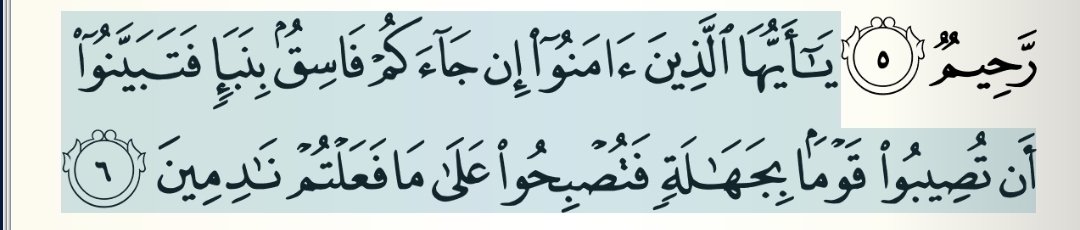 رَّحِيمٌ ٥ يَـٰٓأَيُّهَا ٱلَّذِينَ ءَامَنُوٓا۟ إِن جَآءَكُمْ فَاسِقٌۢ بِنَبَإٍ فَتَبَيَّنُوٓا۟
أَن تُصِيبُوا۟ قَوْمًۢا بِجَهَـٰلَةٍ فَتُصْبِحُوا۟ عَلَىٰ مَا فَعَلْتُمْ نَـٰدِمِينَ ٦